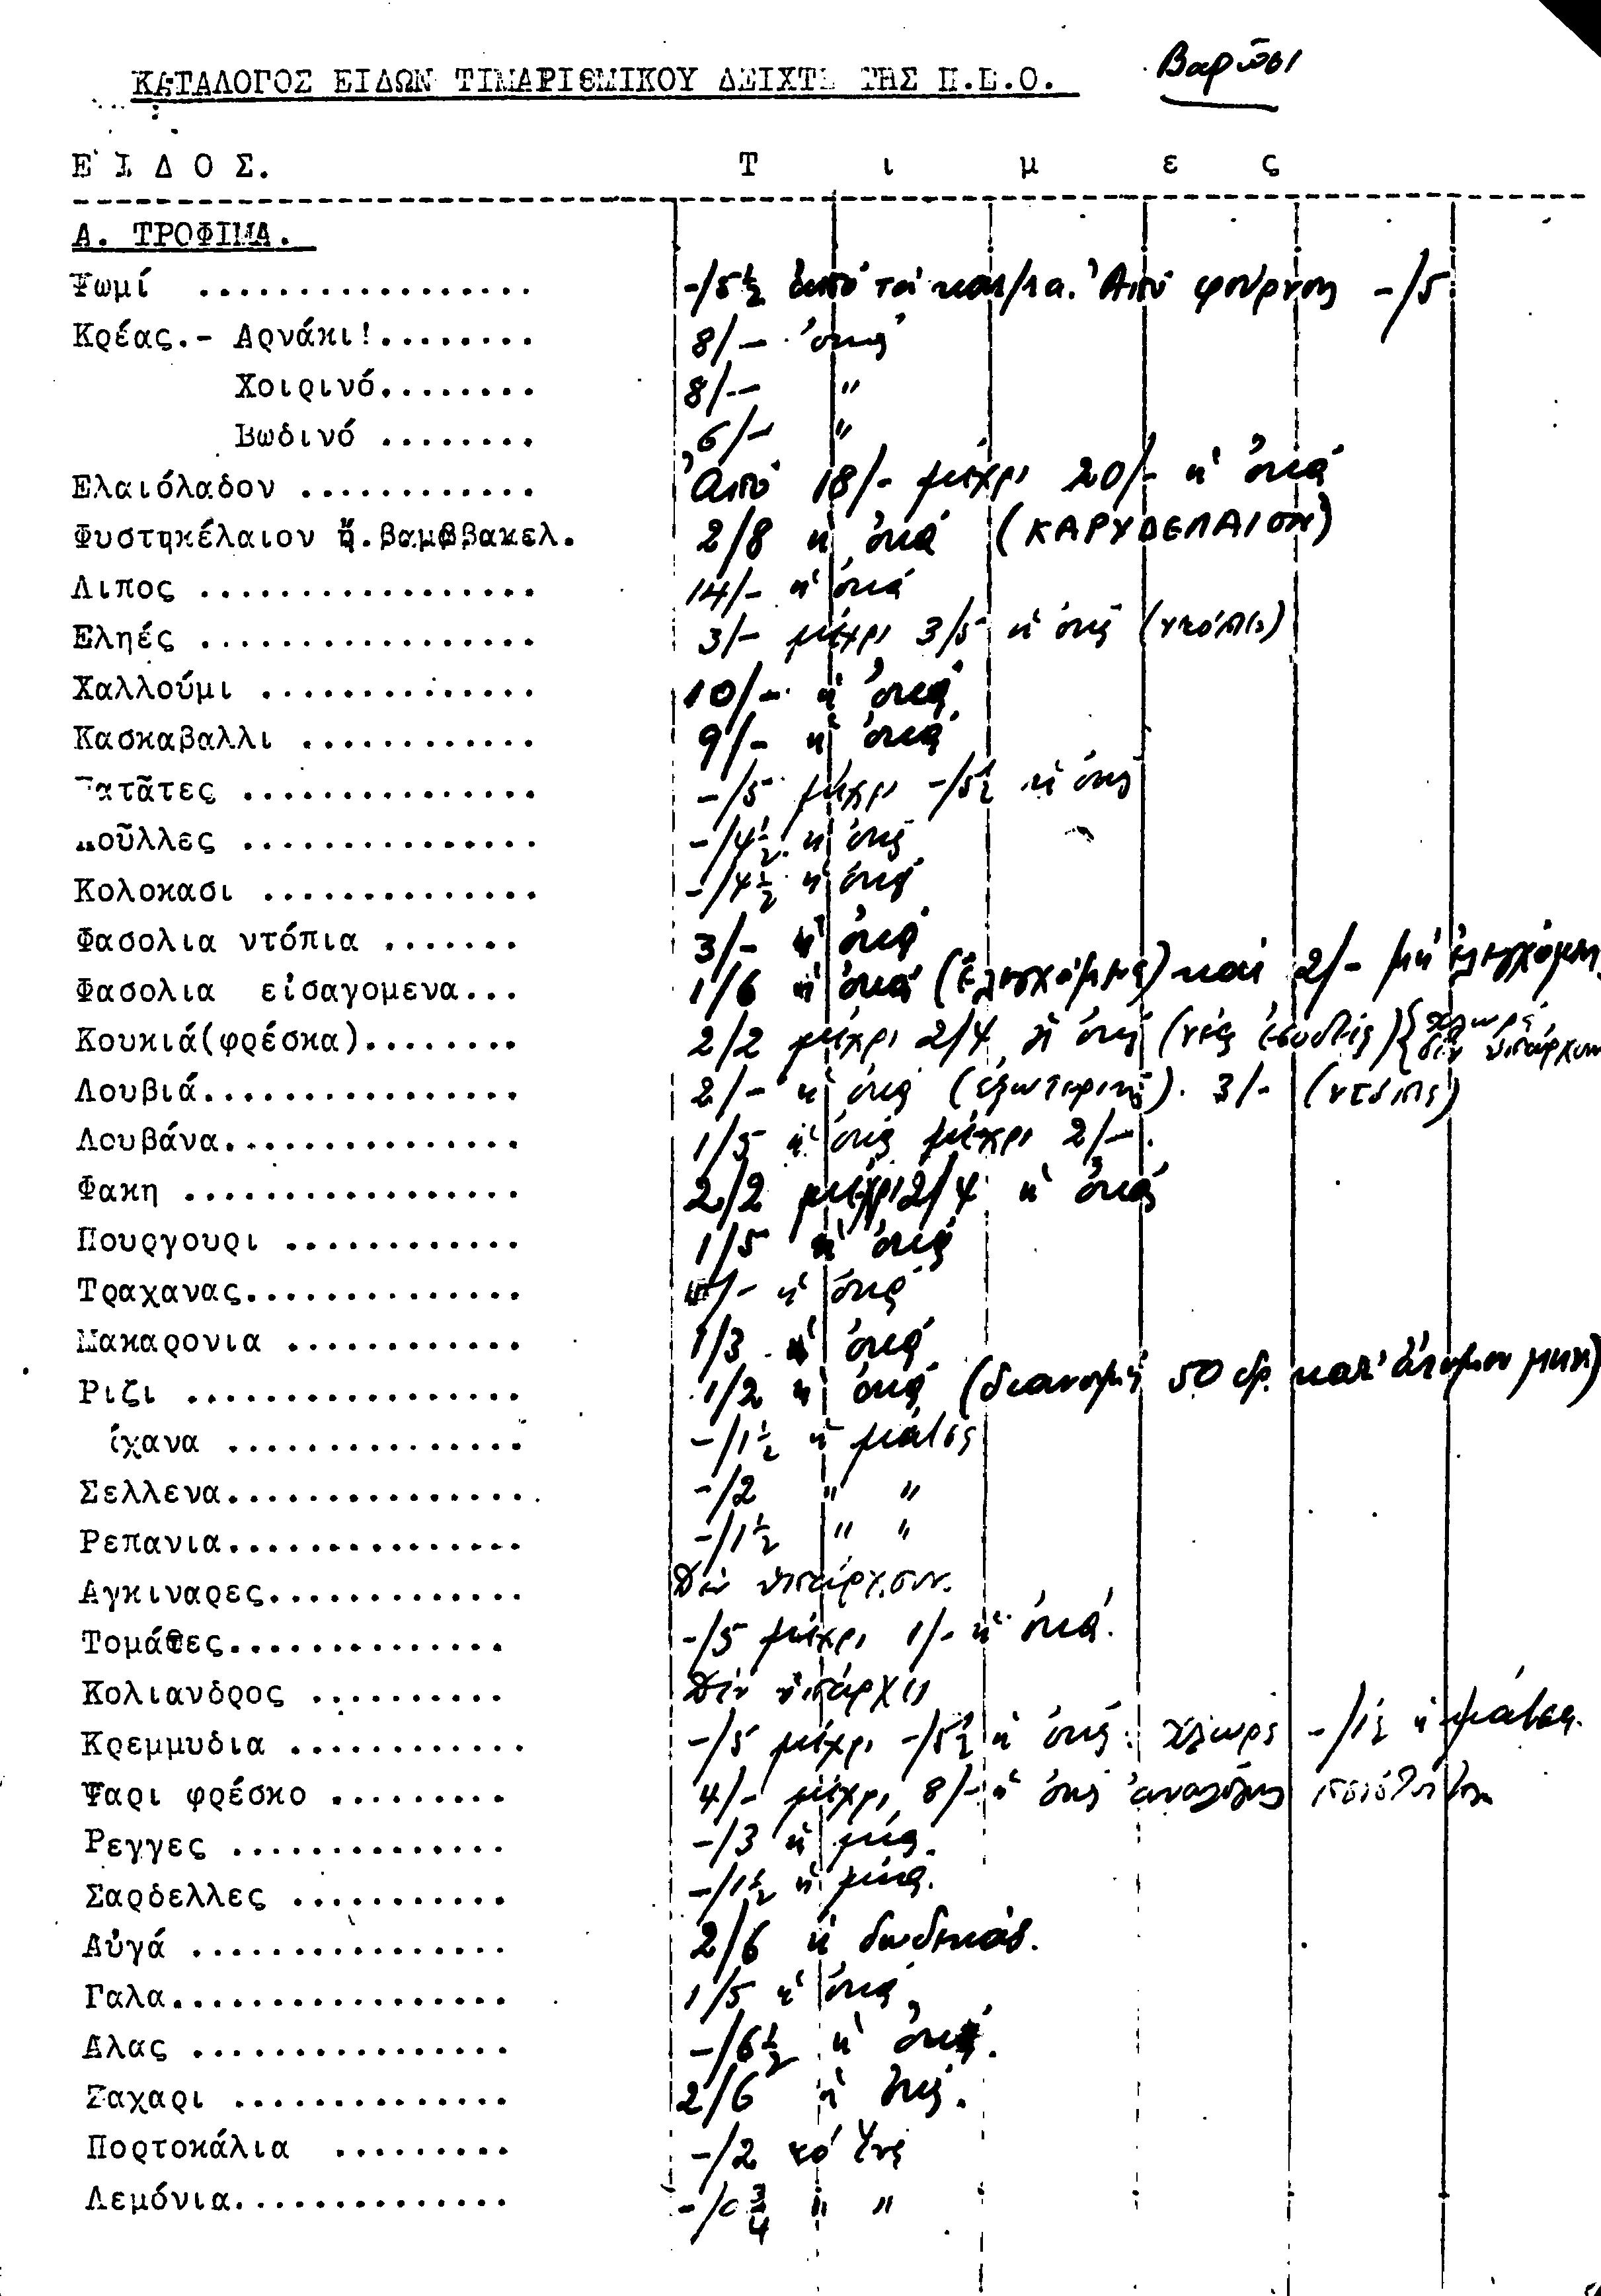 ΚΑΤΑΛΟΓΟΣ ΕΙΔΩΝ ΤΙΜΑΡΙΘΜΙΚΟΥ ΔΕΙΧΤΗ ΤΗΣ Π.Ε.Ο. Βαρώσι
ΕΙΔΟΣ. Τιμες
Α. ΤΡΟΦΙΜΑ.
Ψωμί ................. -/5½ ἀπό τά κατ/τα. Ἀπό φούρνους -/5
Κρέας.- Αρνάκι!........ 8/- ὀκᾶ
Χοιρινό........ 8/- "
Βωδινό ........ 6/- "
Ελαιόλαδον ............ Ἀπό 18/- μέχρι 20/- ἡ ὀκᾶ
Φυστηκέλαιον ἤ.βαμββακελ. 2/8 ἡ ὀκᾶ (ΚΑΡΥΔΕΛΑΙΟΝ)
Λιπος ................. 14/- ἡ ὀκᾶ
Εληές ................. 3/- μέχρι 3/5 ἡ ὀκᾶ (ντόπιες)
Χαλλούμι .............. 10/- ἡ ὀκᾶ
Κασκαβαλλι ............ 9/- ἡ ὀκᾶ
Πατᾶτες ............... -/5 μέχρι -/5½ ἡ ὀκᾶ
Ποῦλλες ............... -/4½ ἡ ὀκᾶ
Κολοκασι .............. -/4½ ἡ ὀκᾶ
Φασολια ντόπια ....... 3/- ἡ ὀκᾶ
Φασολια εἰσαγομενα... 1/6 ἡ ὀκᾶ (ἐλεγχόμενα) καί 2/- μή ἐλεγχόμενα
Κουκιά(φρέσκα)........ 2/2 μέχρι 2/4 ἡ ὀκᾶ (νέας ἐσοδείας) {χλωρά δέν ὑπάρχουν
Λουβιά................ 2/- ἡ ὀκᾶ (ἐξωτερικῆς). 3/- (ντόπια)
Λουβάνα............... 1/5 ἡ ὀκᾶ μέχρι 2/-.
Φακη ................. 2/2 μέχρι 2/4 ἡ ὀκᾶ
Πουργουρι ............ 1/5 ἡ ὀκᾶ
Τραχανας.............. /- ἡ ὀκᾶ
Μακαρονια ............ 1/3 ἡ ὀκᾶ
Ριζι ................. 1/2 ἡ ὀκᾶ (διανομή 50 δρ. κατ' ἄτομον μην)
άχανα ............... -/1½ ἡ μάτσα
Σελλενα............... -/2 " "
Ρεπανια............... -/1½ " "
Αγκιναρες............. Δέν ὑπάρχουν.
Τομάτες.............. -/5 μέχρι 1/- ἡ ὀκᾶ.
Κολιανδρος .......... Δέν ὑπάρχει
Κρεμμυδια ............ -/5 μέχρι -/5½ ἡ ὀκᾶ. χλωρά -/1½ ἡ μάτσα.
Ψαρι φρέσκο ......... 4/- μέχρι 8/- ἡ ὀκᾶ ἀναλόγως ποιότητος
Ρεγγες .............. -/3 ἡ μία.
Σαρδελλες ........... -/1½ ἡ μία.
Αὐγά ................ 2/6 ἡ δωδεκάδ.
Γαλα................. 1/5 ἡ ὀκᾶ
Αλας ................ -/6½ ἡ ὀκᾶ.
Ζαχαρι .............. 2/6 ἡ ὀκᾶ.
Πορτοκάλια ......... -/2 τό ἕνα
Λεμόνια.............. -/0¾ " "